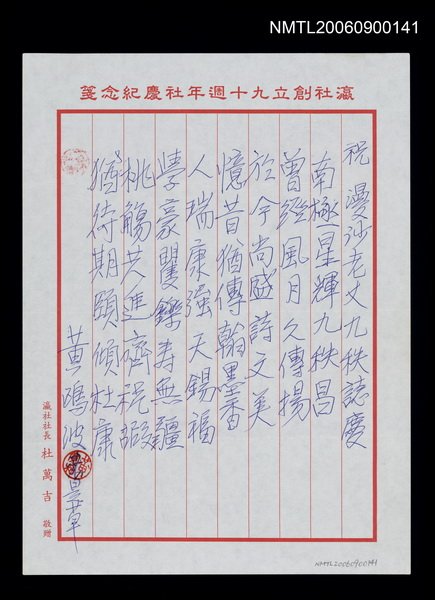 NMTL20060900141
瀛社創立九十週年社慶紀念箋
祝漫沙老丈九秩誌慶
南極星輝九秩昌
曾經風月久傳揚
於今尚盛詩文美
憶昔猶傳翰墨香
人瑞康強天錫福
學豪矍鑠壽無疆
桃觴共進齊祝嘏
猶待期頤傾杜康
黃鳴波 草
瀛社社長 杜萬吉 敬贈
NMTL20060900141